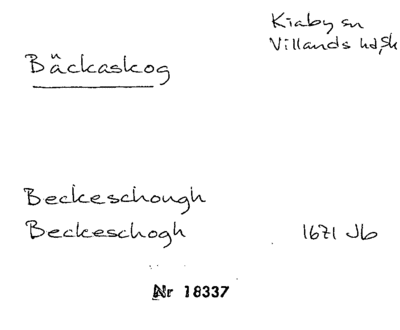 Kiaby sn
Villands hd, Sk
Bäckaskog
Beckeschough
Beckeschogh 1671 Jb
Nr 18337